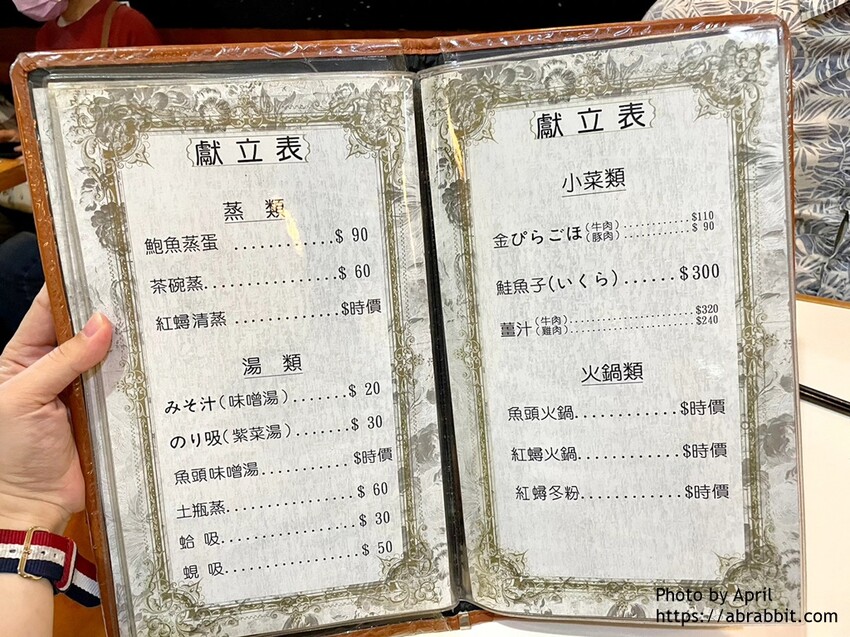 獻立表
蒸 類
鮑魚蒸蛋 ............$ 90
茶碗蒸................$ 60
紅蟳清蒸 ............$時價
湯 類
みそ汁(味噌湯).......$ 20
のり吸(紫菜湯).......$ 30
魚頭味噌湯...........$時價
土瓶蒸................$ 60
蛤 吸.................$ 30
蜆 吸.................$ 50
獻立表
小菜類
金ぴらごほ(牛肉)............$110
(豚肉)............$ 90
鮭魚子(いくら)......$300
薑汁(牛肉)....................$320
(雞肉)....................$240
火鍋類
魚頭火鍋............$時價
紅蟳火鍋............$時價
紅蟳冬粉............$時價
Photo by April
https://abrabbit.com